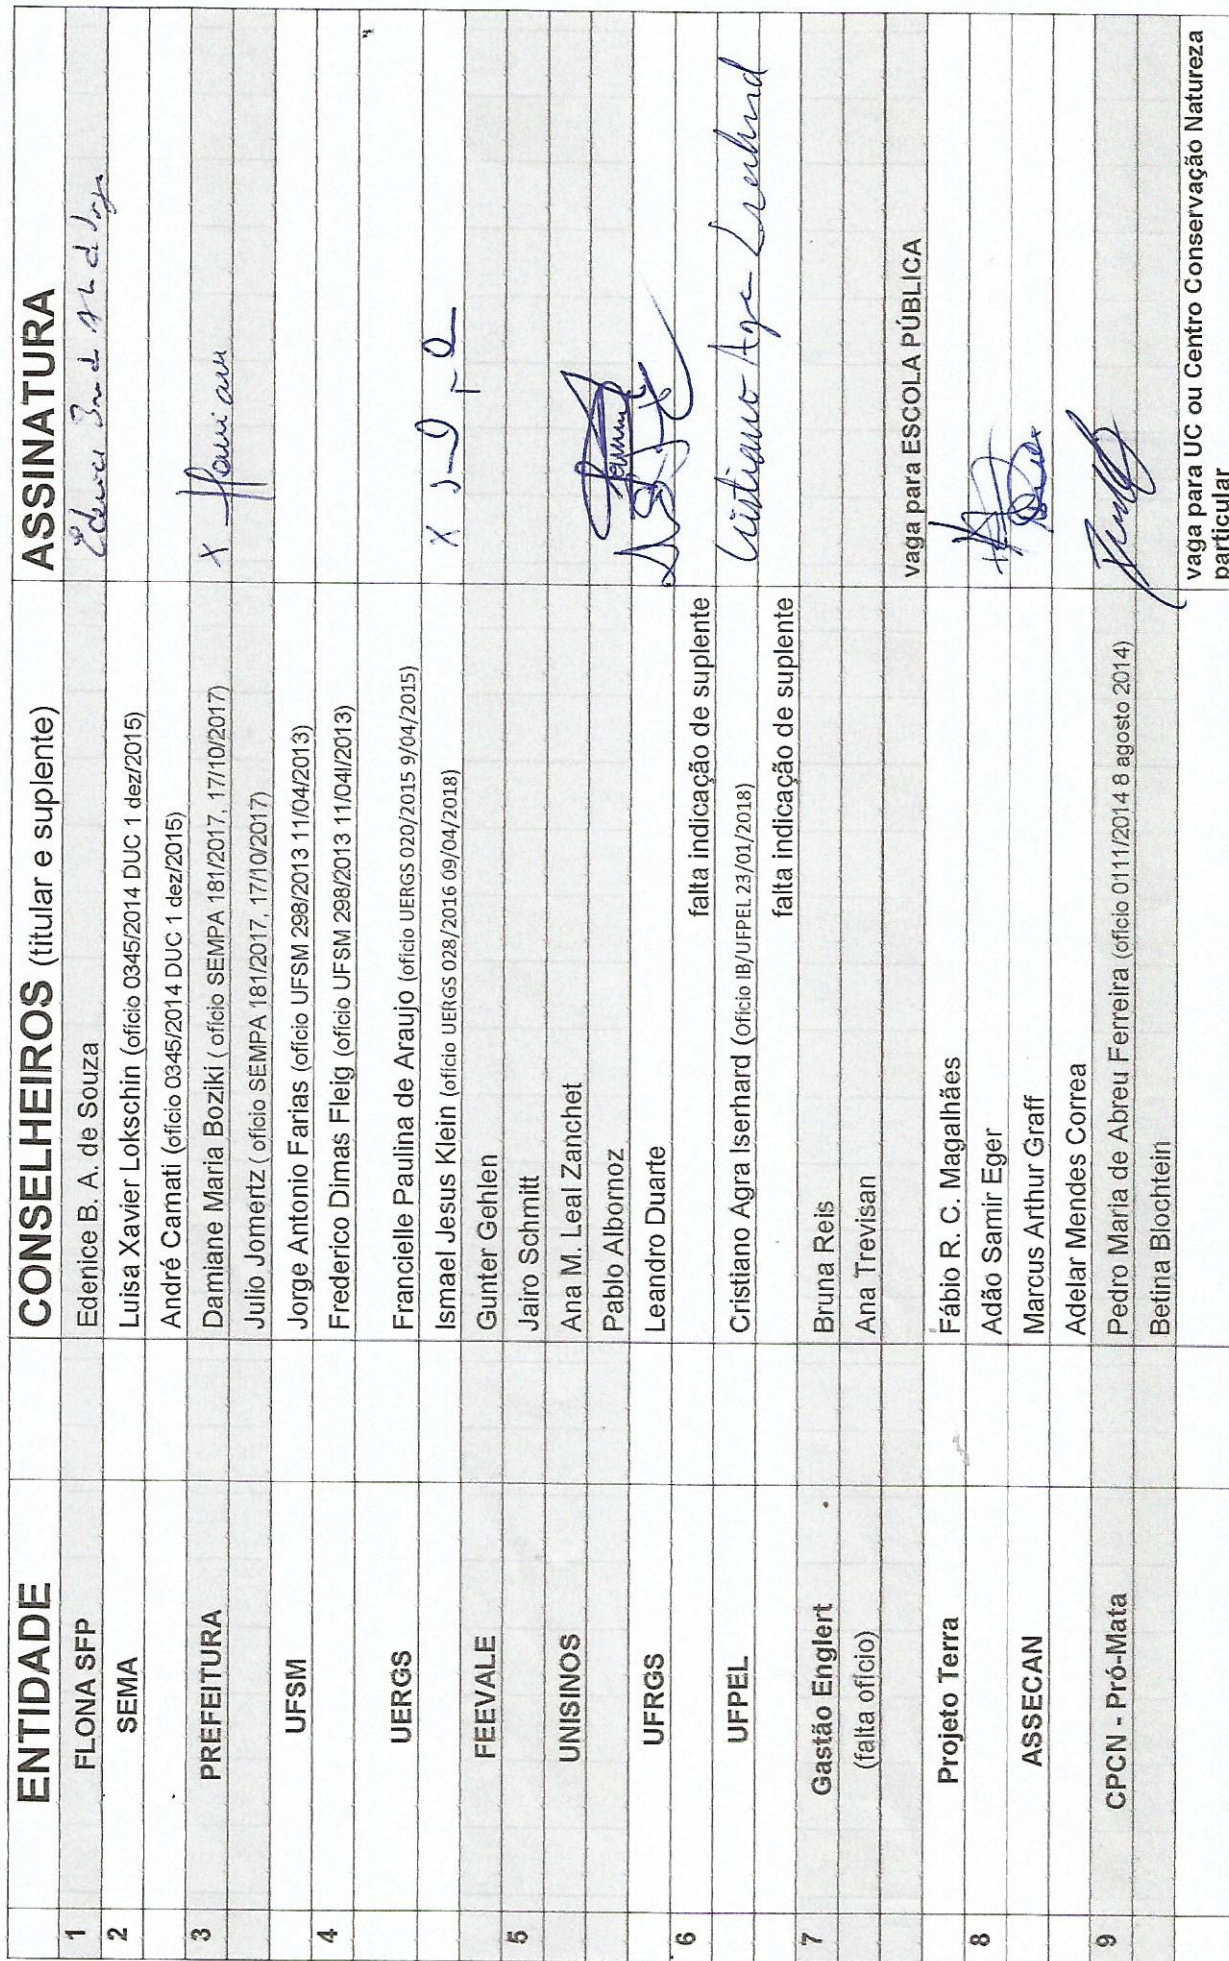 ENTIDADE CONSELHEIROS (titular e suplente) ASSINATURA
1 FLONA SFP Edenice B. A. de Souza
2 SEMA Luisa Xavier Lokschin (ofício 0345/2014 DUC 1 dez/2015)
André Camati (ofício 0345/2014 DUC 1 dez/2015)
3 PREFEITURA Damiane Maria Boziki ( ofício SEMPA 181/2017, 17/10/2017) x
Julio Jomertz ( ofício SEMPA 181/2017, 17/10/2017)
UFSM Jorge Antonio Farias (ofício UFSM 298/2013 11/04/2013)
4 Frederico Dimas Fleig (ofício UFSM 298/2013 11/04l/2013)
UERGS Francielle Paulina de Araujo (ofício UERGS 020/2015 9/04/2015)
Ismael Jesus Klein (ofício UERGS 028/2016 09/04/2018) x
FEEVALE Gunter Gehlen
5 Jairo Schmitt
UNISINOS Ana M. Leal Zanchet
Pablo Albornoz
UFRGS Leandro Duarte
6 falta indicação de suplente
UFPEL Cristiano Agra Iserhard (ofício IB/UFPEL 23/01/2018) Cristiano Agra Iserhard
falta indicação de suplente
7 Gastão Englert Bruna Reis
(falta ofício) Ana Trevisan
vaga para ESCOLA PÚBLICA
Projeto Terra Fábio R. C. Magalhães
8 Adão Samir Eger
ASSECAN Marcus Arthur Graff
Adelar Mendes Correa
9 CPCN - Pró-Mata Pedro Maria de Abreu Ferreira (ofício 0111/2014 8 agosto 2014)
Betina Blochtein
vaga para UC ou Centro Conservação Natureza
particular